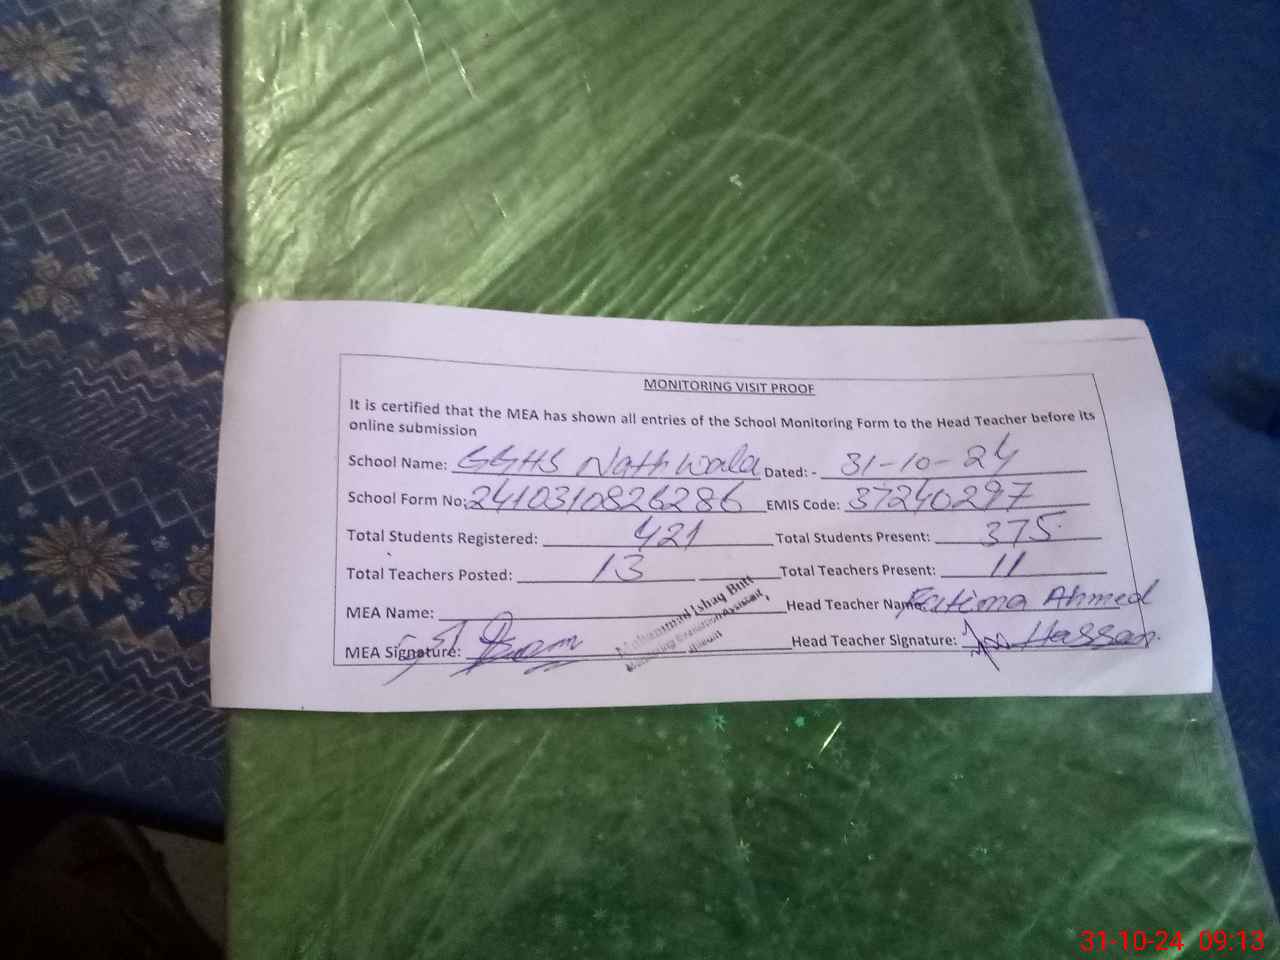 MONITORING VISIT PROOF
It is certified that the MEA has shown all entries of the School Monitoring Form to the Head Teacher before its
online submission
School Name: GGHS Nathwala Dated: - 31-10-24
School Form No: 2410310826286 EMIS Code: 37240297
Total Students Registered: 421 Total Students Present: 375
Total Teachers Posted: 13 Total Teachers Present: 11
MEA Name: Head Teacher Name: Fatima Ahmed
Muhammad Ishaq Butt
Monitoring Evaluation Assistant,
MEA Signature: Head Teacher Signature: Hassan
31-10-24 09:13